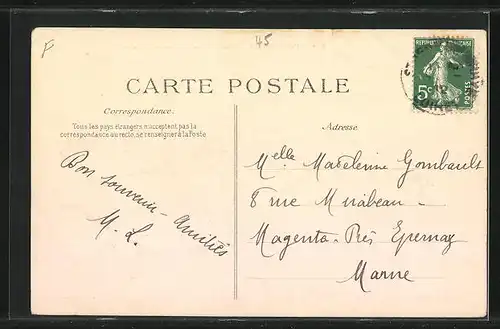 F
45
CARTE POSTALE
Correspondance.
Tous les pays étrangers n'acceptent pas la
correspondance au recto, se renseigner à la Poste
Bon souvenir - Amitiés
M. L.
REPUBLIQUE FRANÇAISE
5c
POSTES
Adresse
Melle Madeleine Gombault
8 rue Mirabeau -
Magenta-Près Epernay
Marne